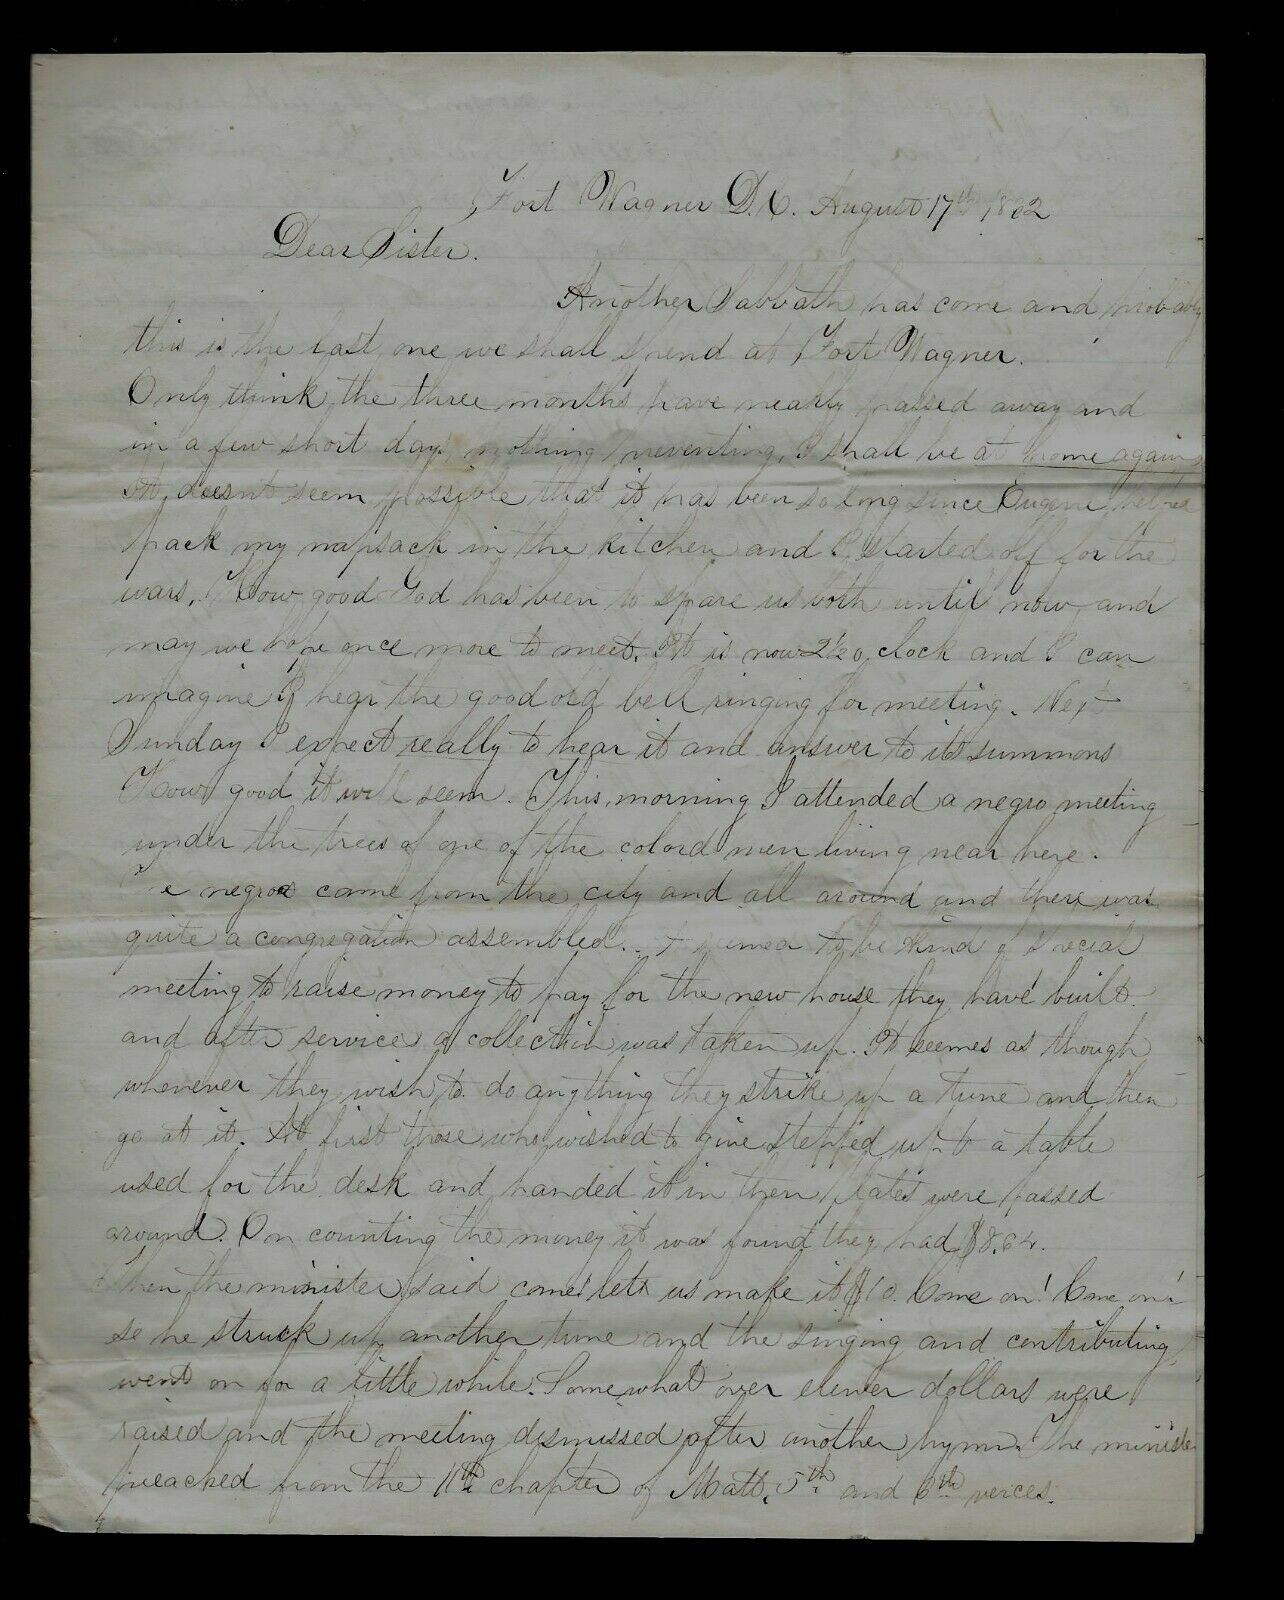 Fort Wagner D.C. August 17th 1862
Dear Sister.
Another Sabbath has come and probably
this is the last one we shall spend at Fort Wagner.
Only think the three months have nearly passed away and
in a few short days, nothing preventing, I shall be at home again,
It doesnt seem possible that it has been so long since Eugene helped
pack my napsack in the kitchen and I started off for the
wars. How good God has been to spare us both until now and
may we hope once more to meet. It is now 2½ o,clock and I can
imagine I hear the good old bell ringing for meeting. Next
Sunday I expect really to hear it and answer to its summons
How good it will seem. This morning I attended a negro meeting
under the trees of one of the colord men living near here.
e negroes came from the city and all around and there was
quite a congregation assembled. It seemed to be kind of special
meeting to raise money to pay for the new house they have built.
and after service a collection was taken up. It seemes as though
whenever they wish to do anything they strike up a tune and then
go at it. At first those who wished to give stepped up to a table
used for the desk and handed it in then plates were passed
around. On counting the money it was found they had $8.64.
then the minister said come! lets us make it $10. Come on! Come on!
so he struck up another tune and the singing and contributing,
went on for a little while. Somewhat over eleven dollars were
raised and the meeting dismissed after another hymn. The minister
preached from the 11th chapter of Matt. 5th and 6th verces.